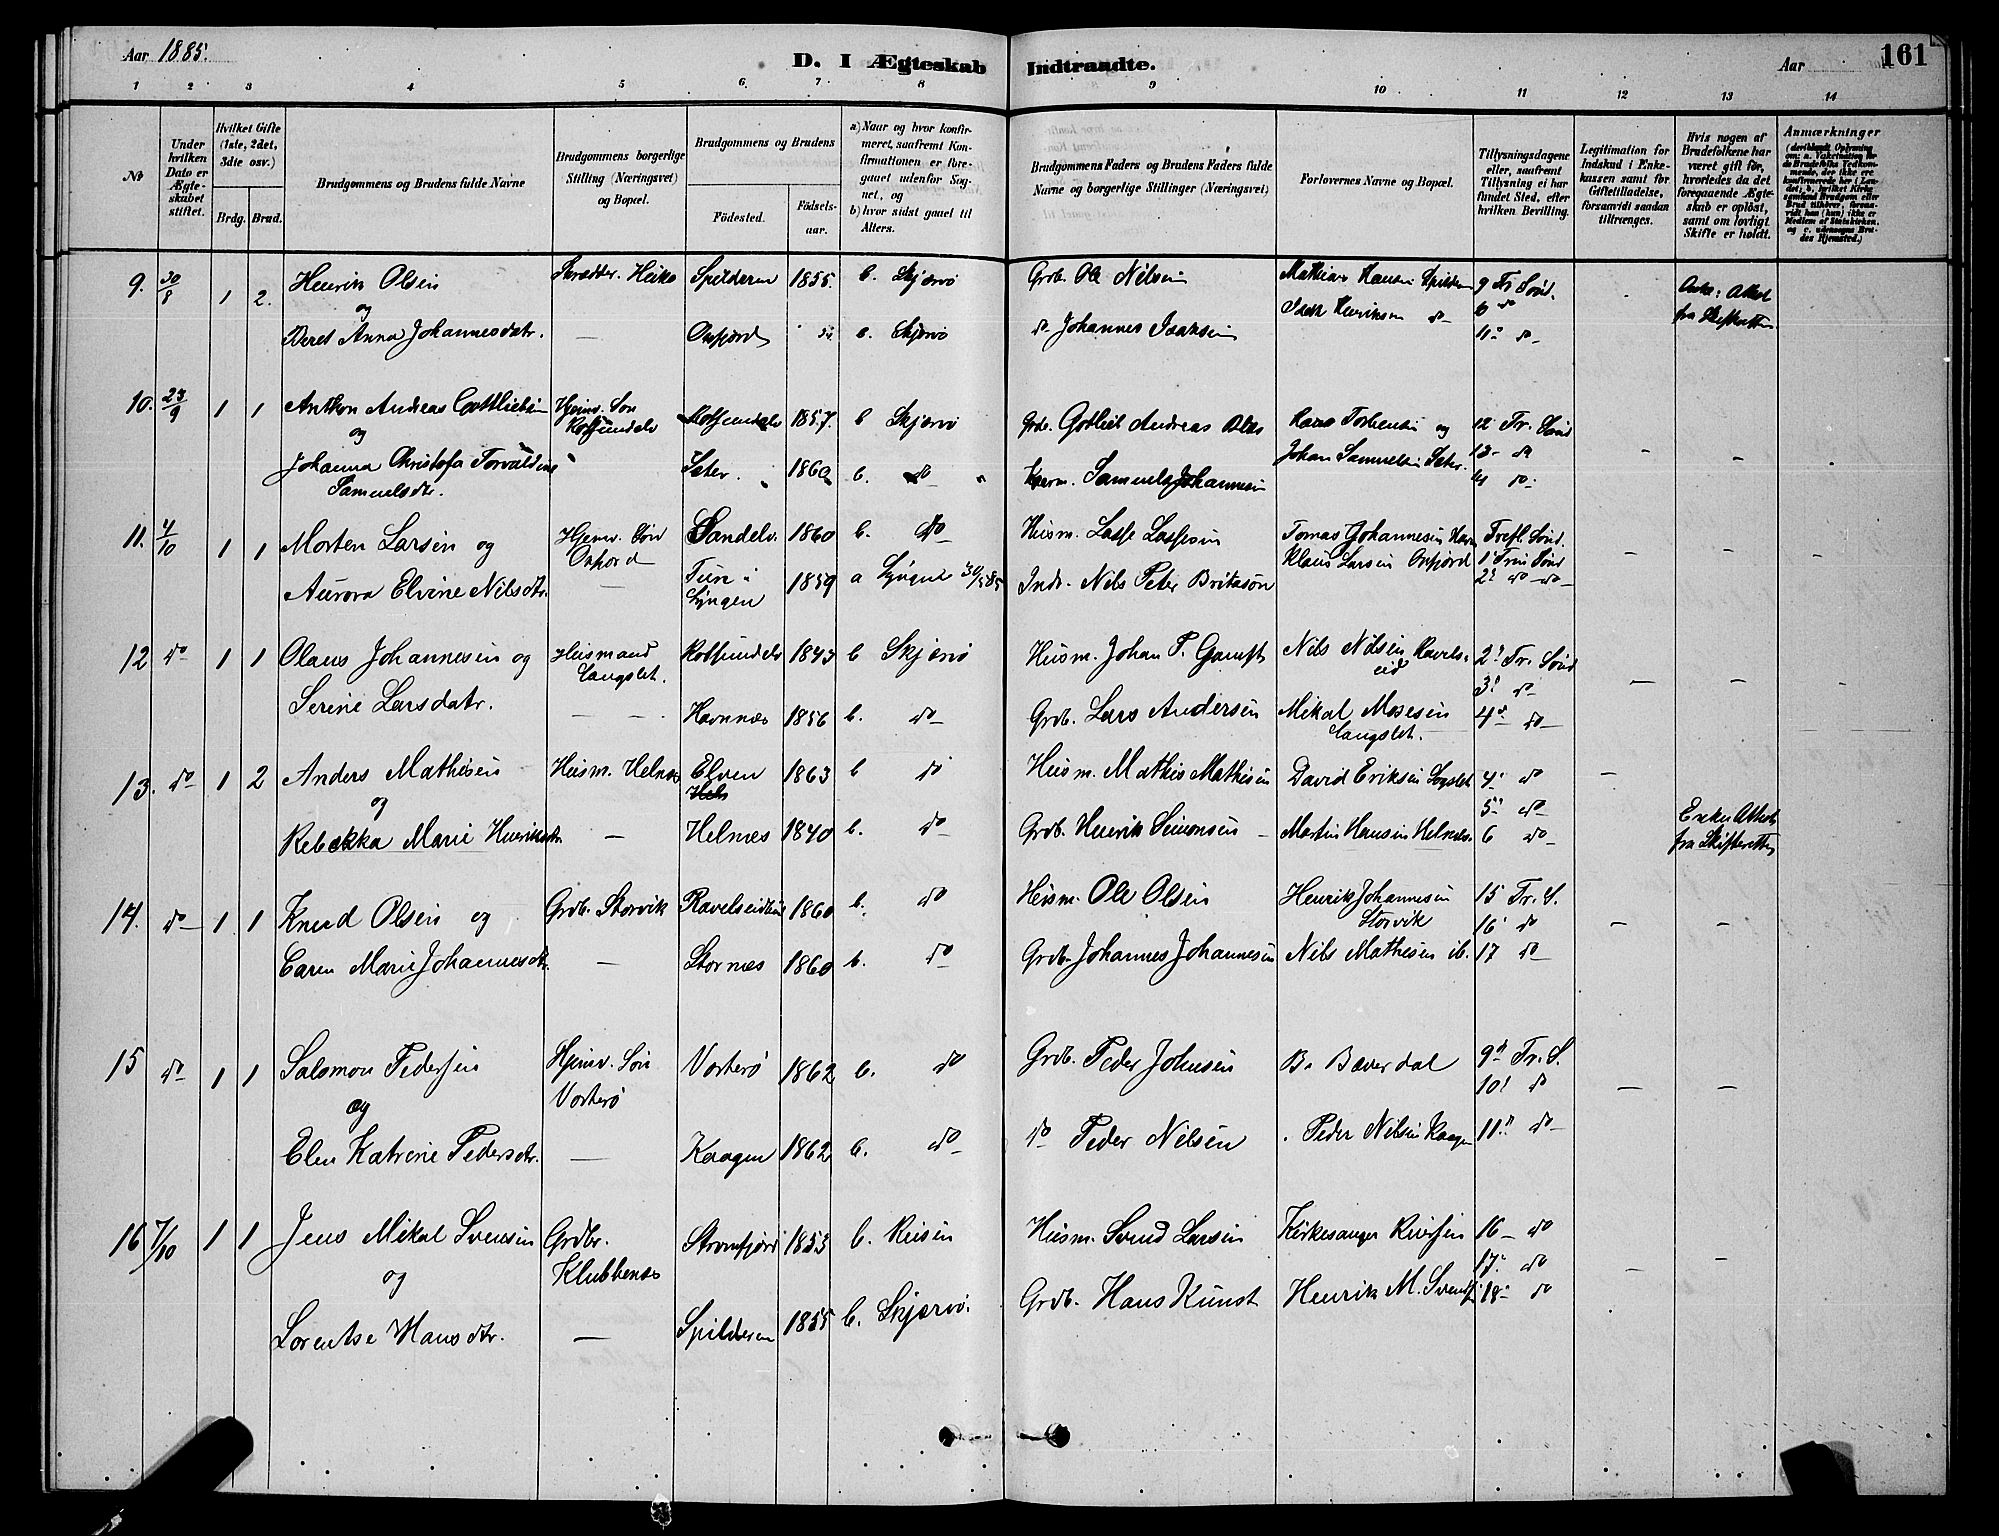 Aar 1885.
D. I Ægteskab Indtraadte.
Aar
161
1 2 3 4 5 6 7 8 9 10 11 12 13 14
No
Under hvilken Dato er Ægteskabet stiftet.
Hvilket Gifte (1ste, 2det, 3dte osv.)
Brdg. Brud.
Brudgommens og Brudens fulde Navne
Brudgommens borgerlige Stilling (Næringsvei) og Bopæl.
Brudgommens og Brudens
Födested. Födselsaar.
a) Naar og hvor konfirmeret, saafremt Konfirmationen er foregaaet udenfor Sognet, og
b) hvor sidst gaaet til Alters.
Brudgommens Faders og Brudens Faders fulde Navne og borgerlige Stillinger (Næringsvei)
Forlovernes Navne og Bopæl.
Tillysningsdagene eller, saafremt Tillysning ei har fundet Sted, efter hvilken Bevilling.
Legitimation for Indskud i Enkekassen samt for Giftetilladelse, forsaavidt saadan tiltrænges.
Hvis nogen af Brudefolkene har været gift för, hvorledes da det foregaaende Ægteskab er oplöst, samt om lovligt Skifte er holdt.
Anmærkninger
9. 30/8 1 2. Henrik Olsen Skrædder. Heiko Spilderen 1855. b. Skjærvö Grdb. Ole Nilsen Mathias Hansen Spilderen 9 Tr. Sönd.
og Isak Henriksen do 6 do
Beret Anna Johannesdatr. — Oxfjord b. Skjervö do Johannes Isaksen 11 do
fra Skifteretten
10. 23/9 1 1 Anthon Andreas Gottliebsen Hjemv. Sön Rotsundelv Rotsundelv 1857. b Skjervö Grdb. Gotlieb Andreas Hans Torbensen og 12 Tr. Sönd
og Johan Samuelsen Seter. 13 do
Johanna Christofa Torvaldine Seter. 1860 b. do Samuel Johannesen do
Samuelsdtr.
11. 4/10 1 1 Morten Larsen og Hjemv. Sön Oxfjord Sandelv. 1860 b. do Husm. Lasse Lassesen Tomas Johannesen Havn Trefl. Sönd.
Klaus Larsen Oxfjord 1' Trin Sönd
Aurora Elvine Nilsdtr. — i Lyngen 1859 a Lyngen 30/5 85 Indr. Nils Peter Britasön 2' do do
12 do 1 1 Olaus Johannesen og Husmand Langslet. Rotsundelv 1843 b Skjervö Husm. Johan P. Gamst Nils Nilsen Ravelseid 2' Tr. Sönd
3' do
Serine Larsdatr. — — Havnnæs 1856 b. do Grdb. Lars Andersen Mikal Mosesen Langslet. 4 do
13. do 1 2 Anders Mathisen Husm. Helnæs Elven 1863 b do Husm. Mathis Mathisen David Eriksen 4' do
og 5' do
Rebekka Marie Henriksdtr — Helnæs 1840 b. do Grdb. Henrik Simonsen Martin Hansen Helnæs. 6 do Enke Attest fra Skifteretten
14. do 1 1 Knud Olsen og Grdb. Storvik Ravelseidet 1860 b. do Husm. Ole Olsen Henrik Johannesen Storvik 15 Tr. S.
16' do
Caren Marie Johannesdtr. — Stornæs 1860 b. do Grdb. Johannes Johannesen Nils Mathisen ib. 17 do
15 do 1 1 Salomon Pedersen Hjemv. Sön Vorterö Vorterö 1862 b. do Grdb. Peder Johnsen B. Bæverdal 9' Tr. S.
og 10' do
Elen Katrine Pedersdtr. — Kaagen 1862 b. do do Peder Nilsen Peder Nilsen Kaagen 11' do
16 7/10 1 1 Jens Mikal Svensen Grdbr. Klubbenæs Straumfjord 1853 b. Reisen Husm. Svend Larsen Kirkesanger Kiversen 16 do
og 17 do
Lorentse Hansdtr. — Spilderen 1855 b. Skjervö. Grdb. Hans Kunst Henrik M. Svendsen 18 do